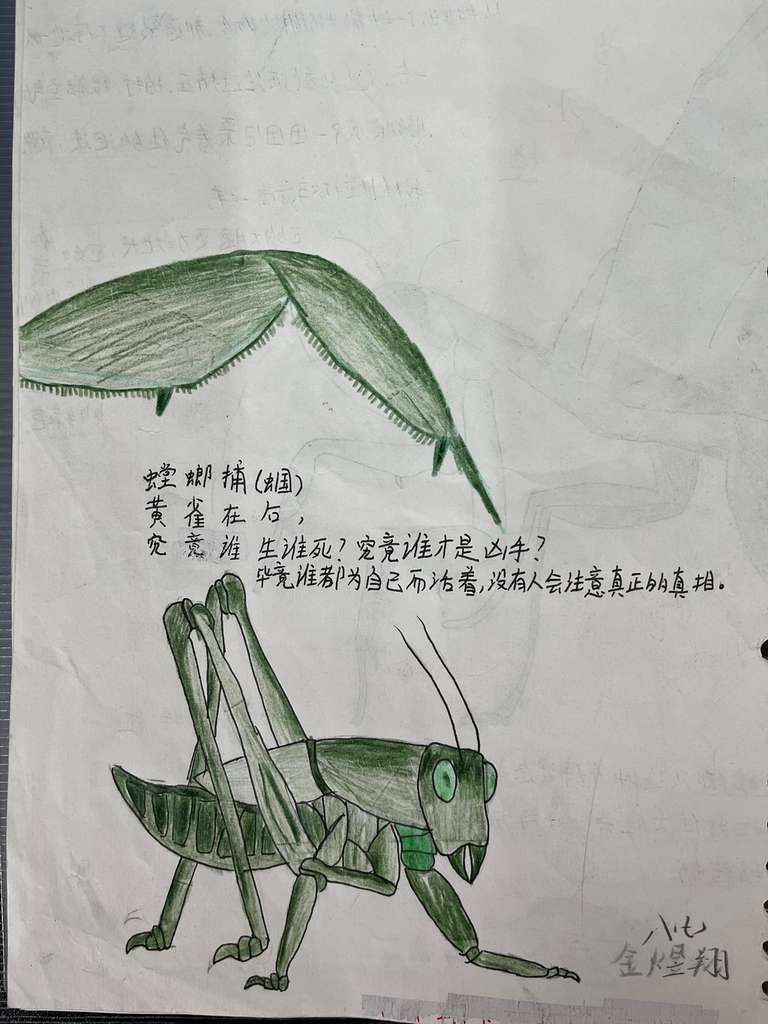 螳螂捕(蝈)
黄雀在后，
究竟谁生谁死？究竟谁才是凶手？
毕竟谁都为自己而活着，没有人会注意真正的真相。
八七
金煜翔